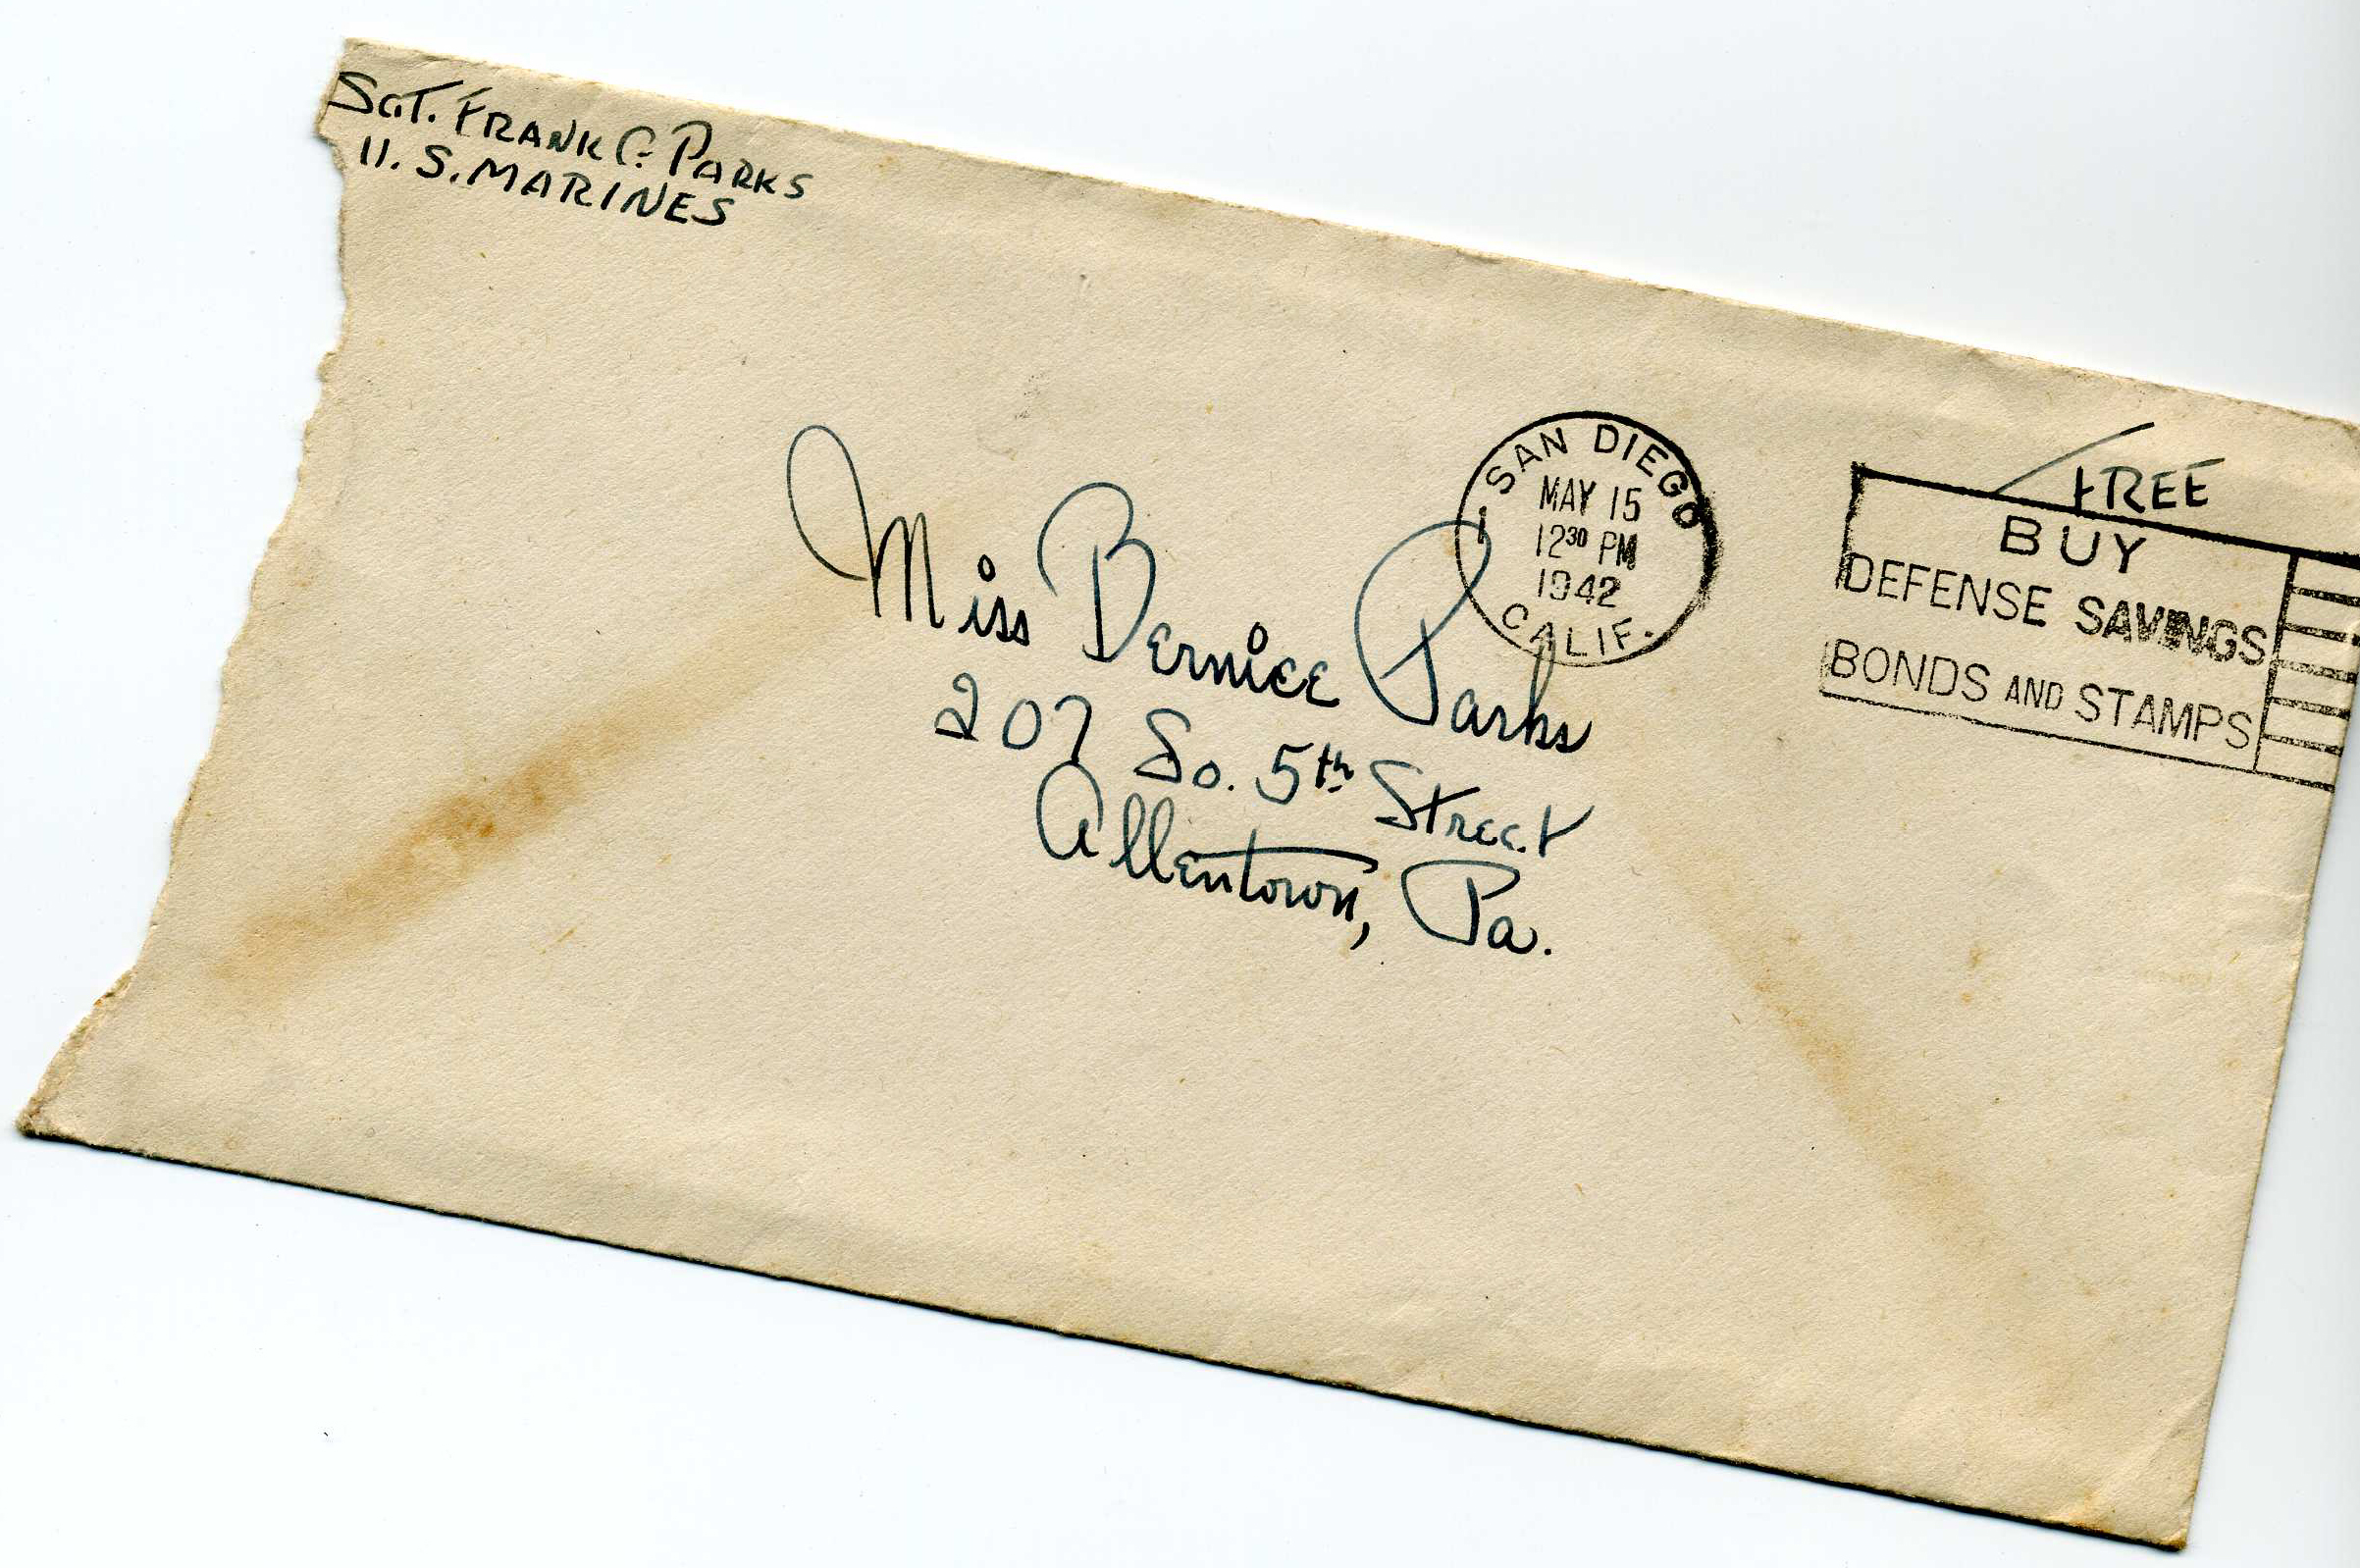 Sgt. FRANK C. PARKS
U. S. MARINES
FREE
SAN DIEGO
MAY 15
12 30 PM
1942
CALIF.
BUY
DEFENSE SAVINGS
BONDS AND STAMPS
Miss Bernice Parks
207 So. 5th Street
Allentown, Pa.